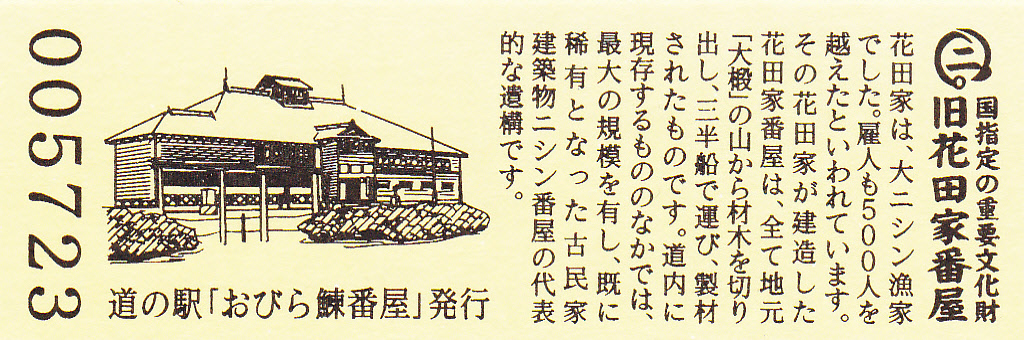 国指定の重要文化財
旧花田家番屋
花田家は、大ニシン漁家
でした。雇人も500人を
越えたといわれています。
その花田家が建造した
花田家番屋は、全て地元
「大椴」の山から材木を切り
出し、三半船で運び、製材
されたものです。道内に
現存するもののなかでは、
最大の規模を有し、既に
稀有となった古民家
建築物ニシン番屋の代表
的な遺構です。
道の駅「おびら鰊番屋」発行
005723